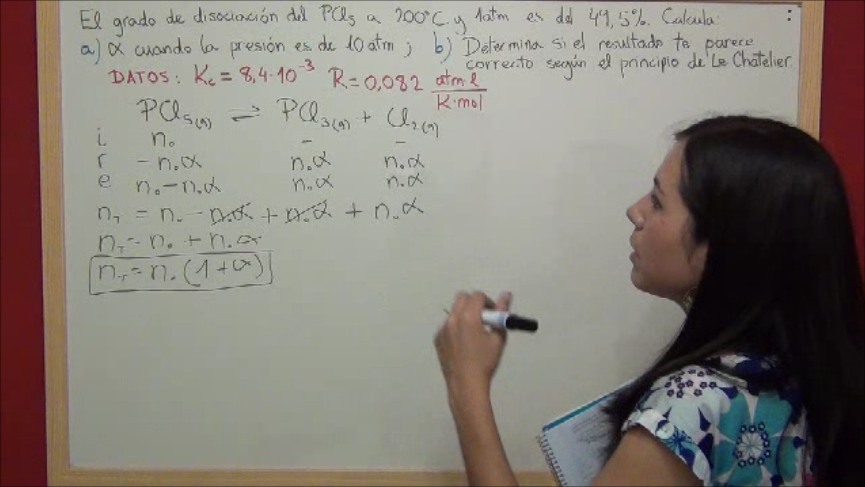 El grado de disociación del PCl₅ a 200°C y 1atm es del 49,5%. Calcula:
a) α cuando la presión es de 10 atm; b) Determina si el resultado te parece
correcto según el principio de Le Chatelier.
DATOS: Kc = 8,4·10⁻³ R = 0,082 atm·l / K·mol
PCl₅(g) ⇌ PCl₃(g) + Cl₂(g)
i n₀ - -
r -n₀α n₀α n₀α
e n₀-n₀α n₀α n₀α
n_T = n₀ - n₀α + n₀α + n₀α
n_T = n₀ + n₀α
n_T = n₀(1+α)